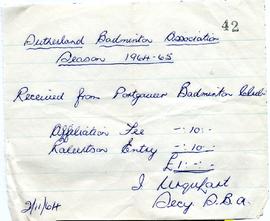 42
Sutherland Badminton Association
Season 1964-65
Received from Portgower Badminton Club
Affiliation Fee -:10:-
Robertson Entry -:10:-
£1:-:-
J Urquhart
Secy S.B.A.
2/11/64